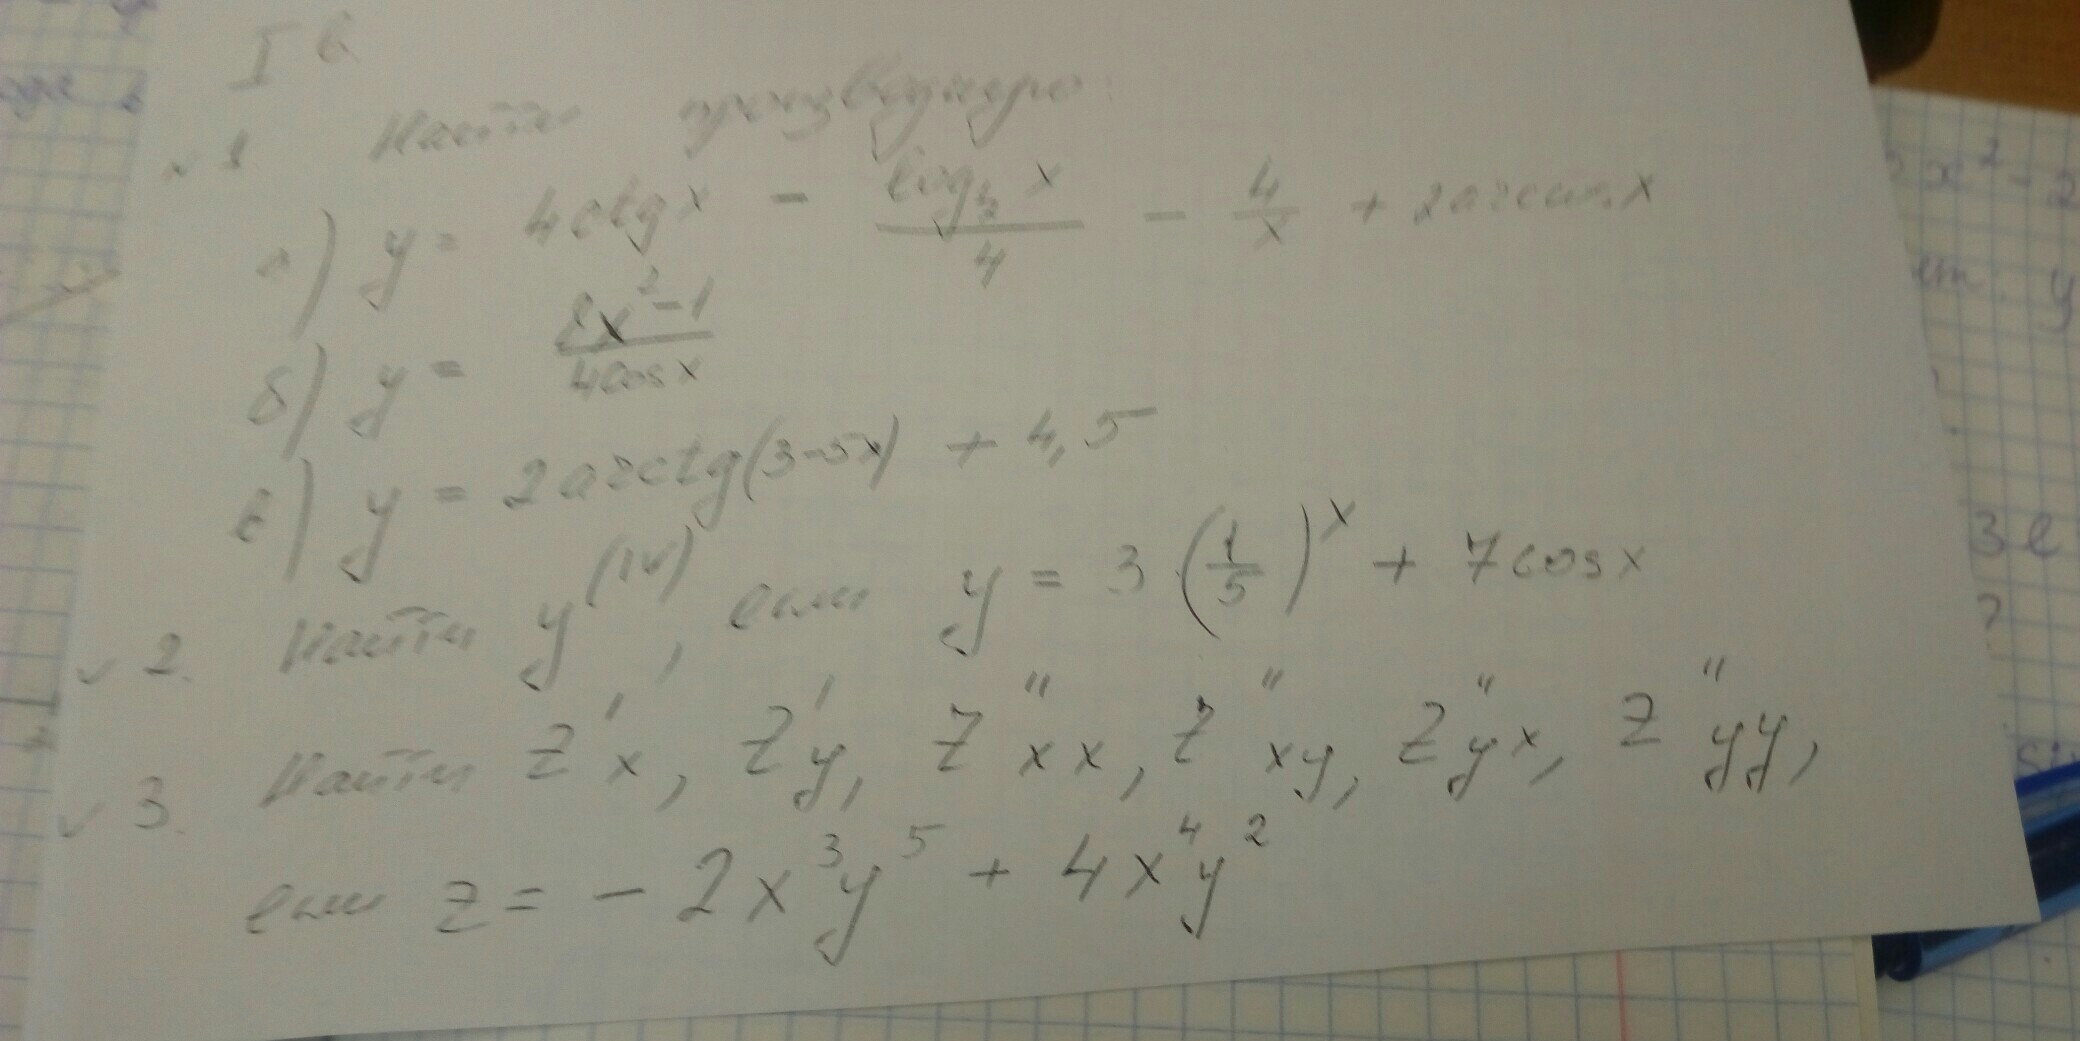 I в
№ 1 Найти производную:
а) y = 4ctgx - log₄x/4 - 4/x + 2arcsin x
б) y = 8x² - 1/4cosx
в) y = 2arctg(3-5x) + 4,5
√ 2. Найти y⁽ᴵⱽ⁾, если y = 3·(1/5)ˣ + 7cosx
√ 3. Найти z'x, z'y, z"xx, z"xy, z"yx, z"yy,
если z = - 2x³y⁵ + 4x⁴y²